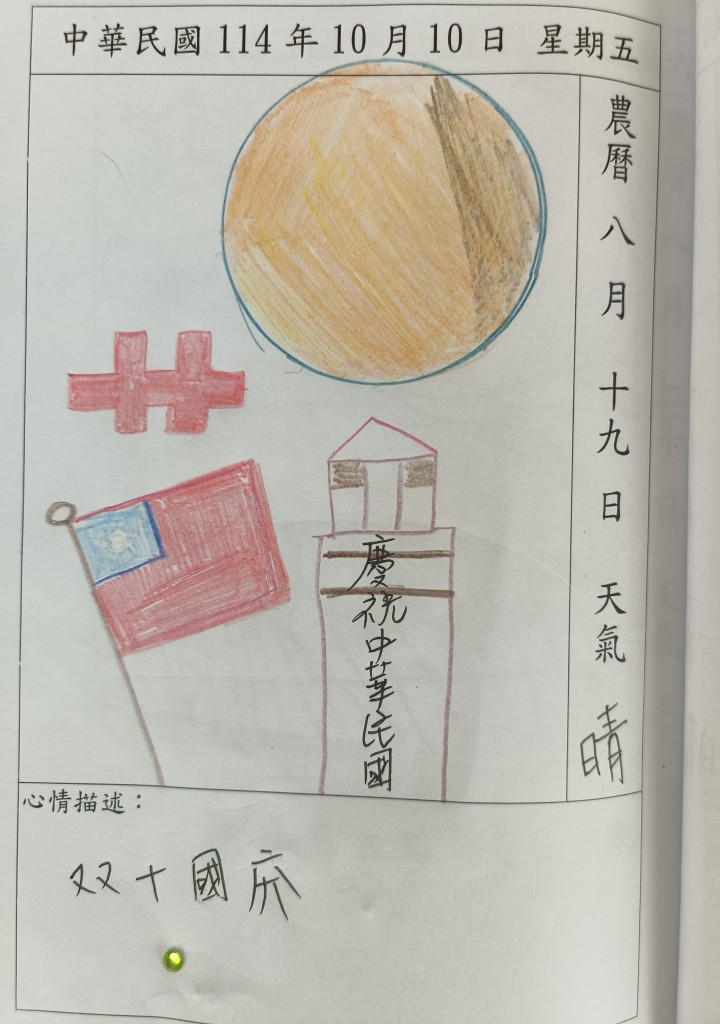 中華民國 114 年 10 月 10 日 星期五
農曆 八 月 十九 日 天氣 晴
慶祝中華民國
心情描述：
双十國庆